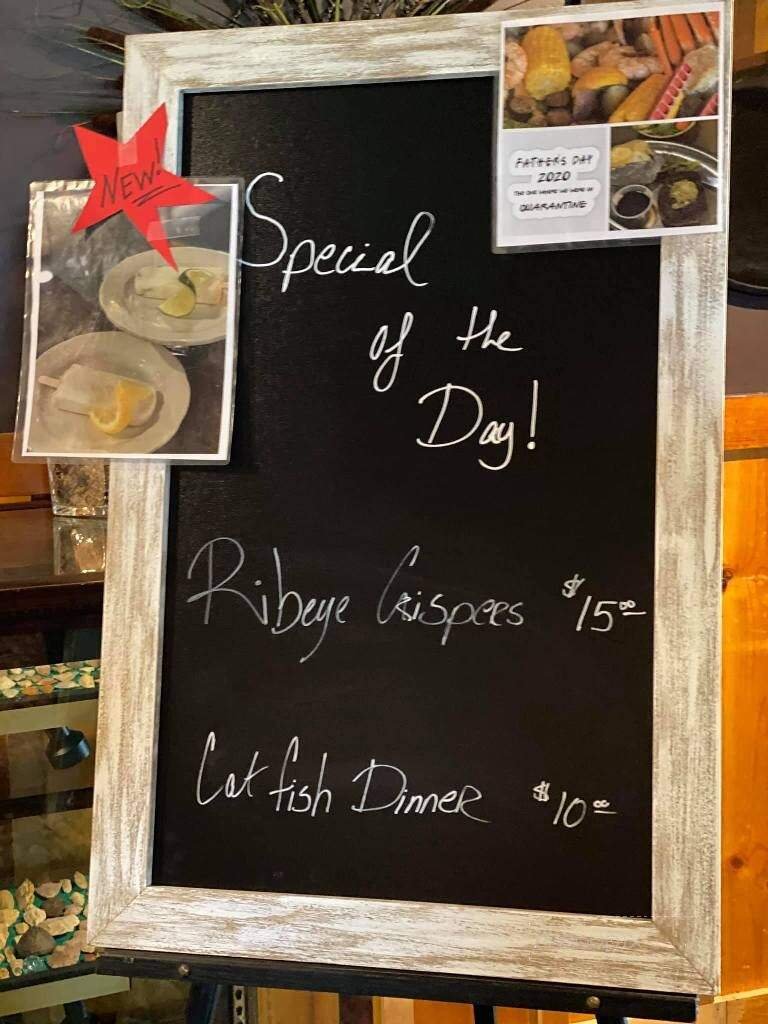 NEW!
FATHERS DAY
2020
THE ONE WHERE WE WERE IN
QUARANTINE
Special
of the
Day!
Ribeye Crispees $15.00
Cat fish Dinner $10.00